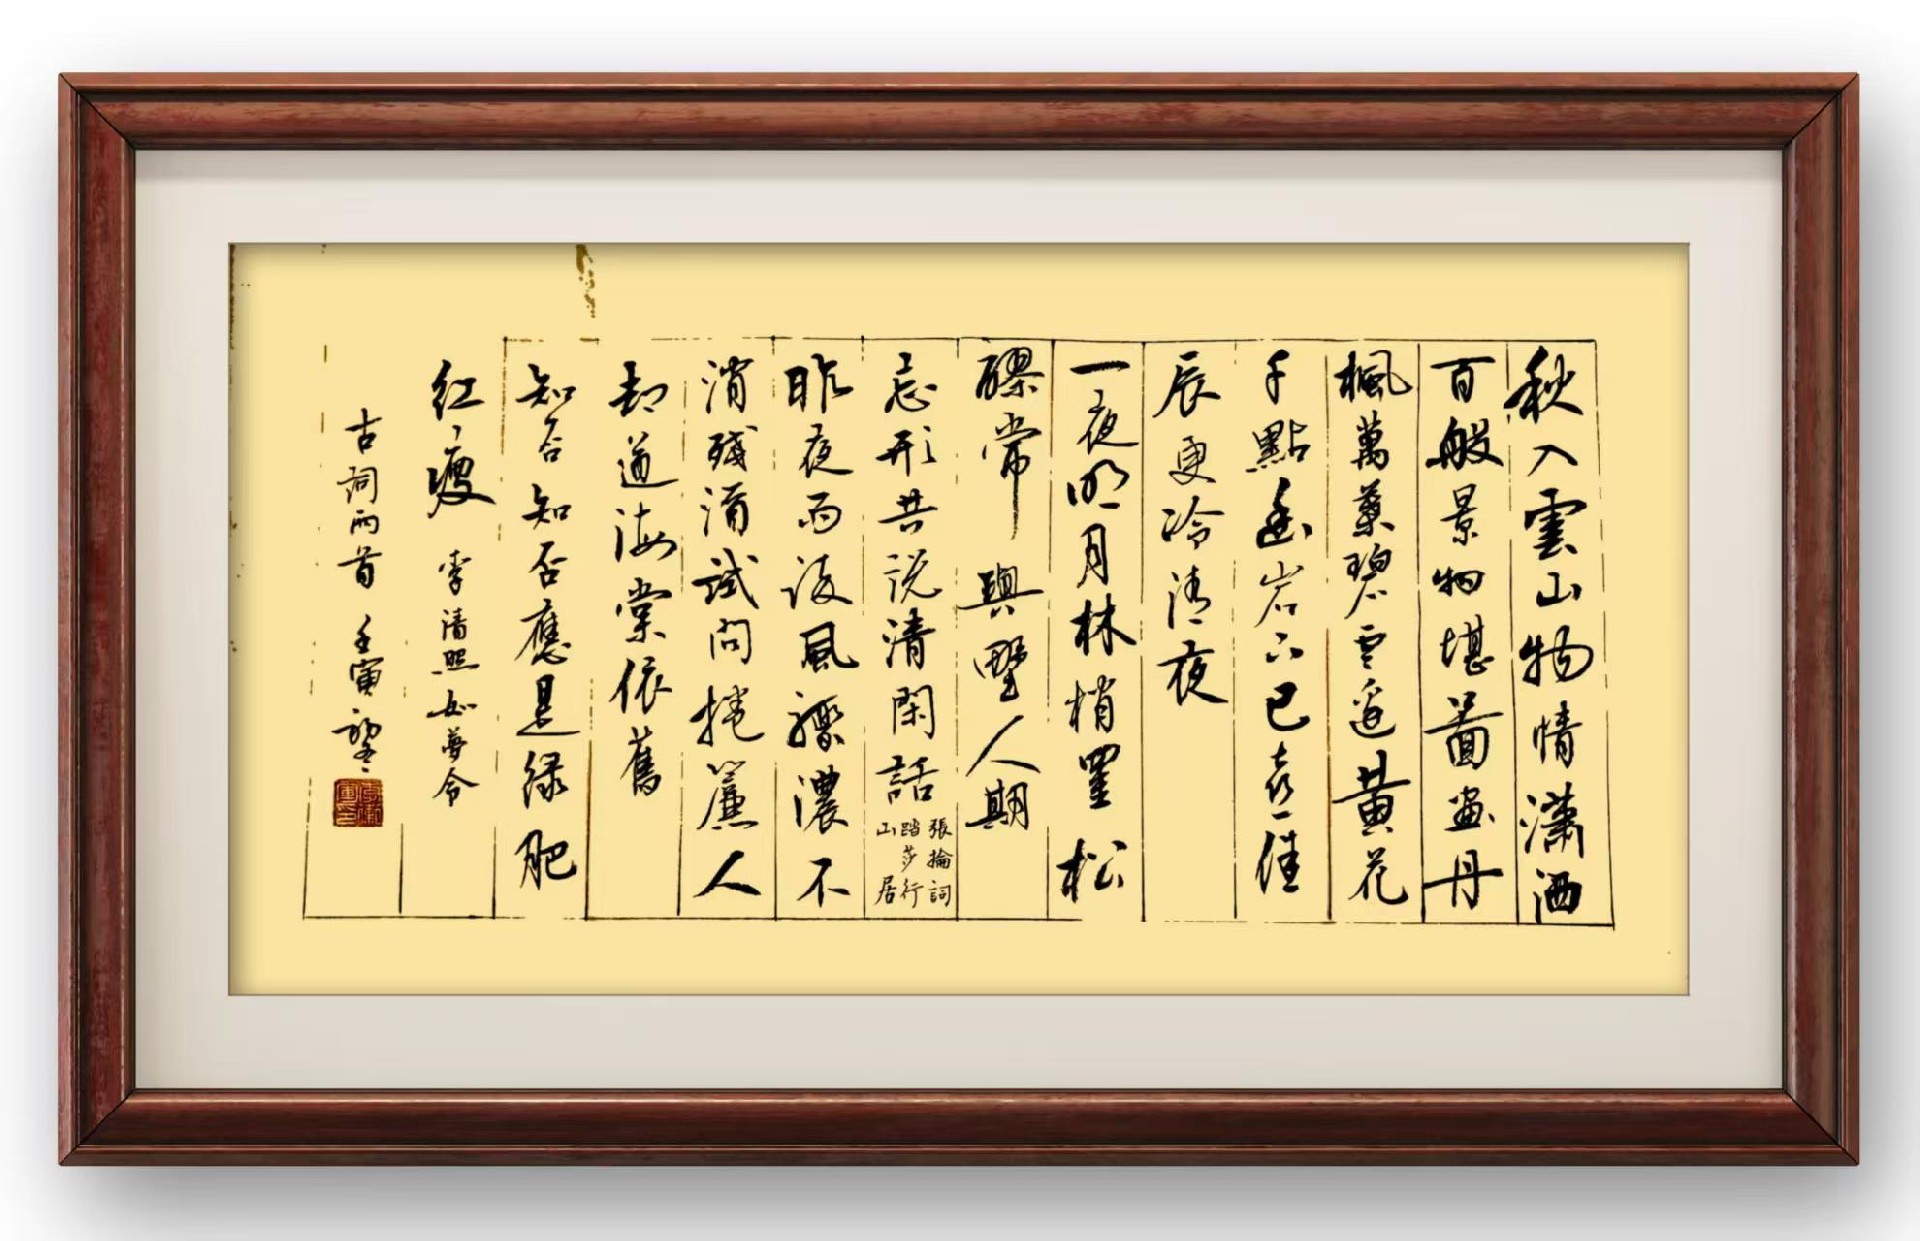 秋入雲山物情瀟洒
百般景物堪圖畫丹
楓萬葉碧雲邊黃花
千點幽岩下已喜佳
辰更冷清夜
一夜明月林梢罣松
醪常與野人期
忘形共説清閑話
張掄詞
踏莎行
山居
昨夜雨疎風驟濃不
消殘酒試問捲簾人
却道海棠依舊
知否知否應是緑肥
紅瘦 李清照如夢令
古詞兩首 壬寅